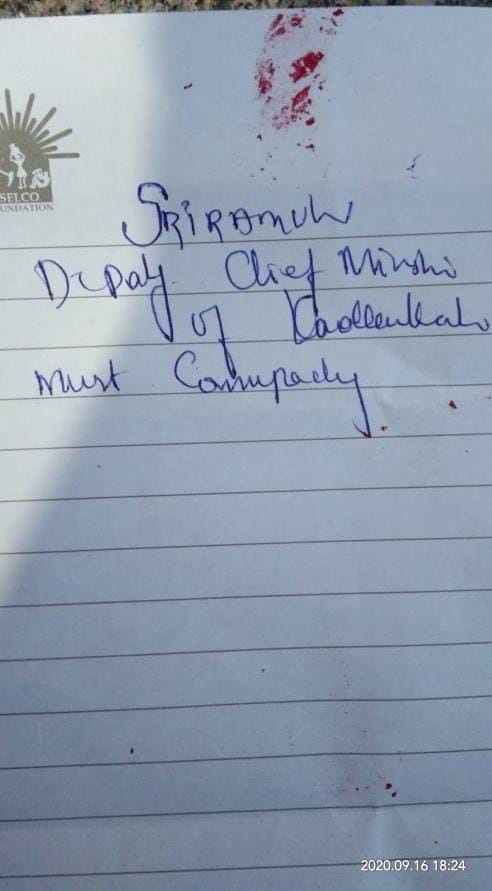 SELCO
FOUNDATION
SRIRAMULU
Deputy Chief Minister
of
must
2020.09.16 18:24